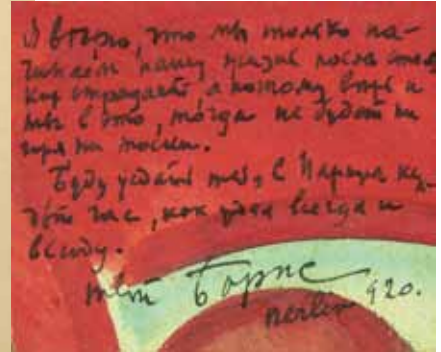 Я верю, что мы только на-
чинаем нашу жизнь после этих
страданий, а потому верь и
ты в это, тогда не будет ни
горя, ни тоски.
Буду ждать тебя в Париже ка-
ждый час, как ждал всегда и
всюду.
твой Борис
Berlin 920.